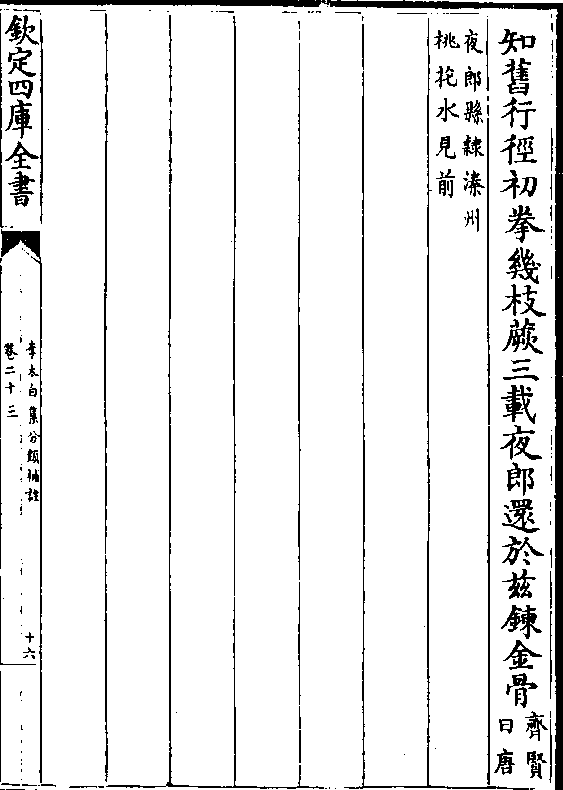 知舊行徑初拳幾枝蕨三載夜郎還於兹鍊金骨齊賢
曰唐
夜郎縣隸溱州
桃花水見前
欽定四庫全書
李太白集分類補註
卷二十三
十六